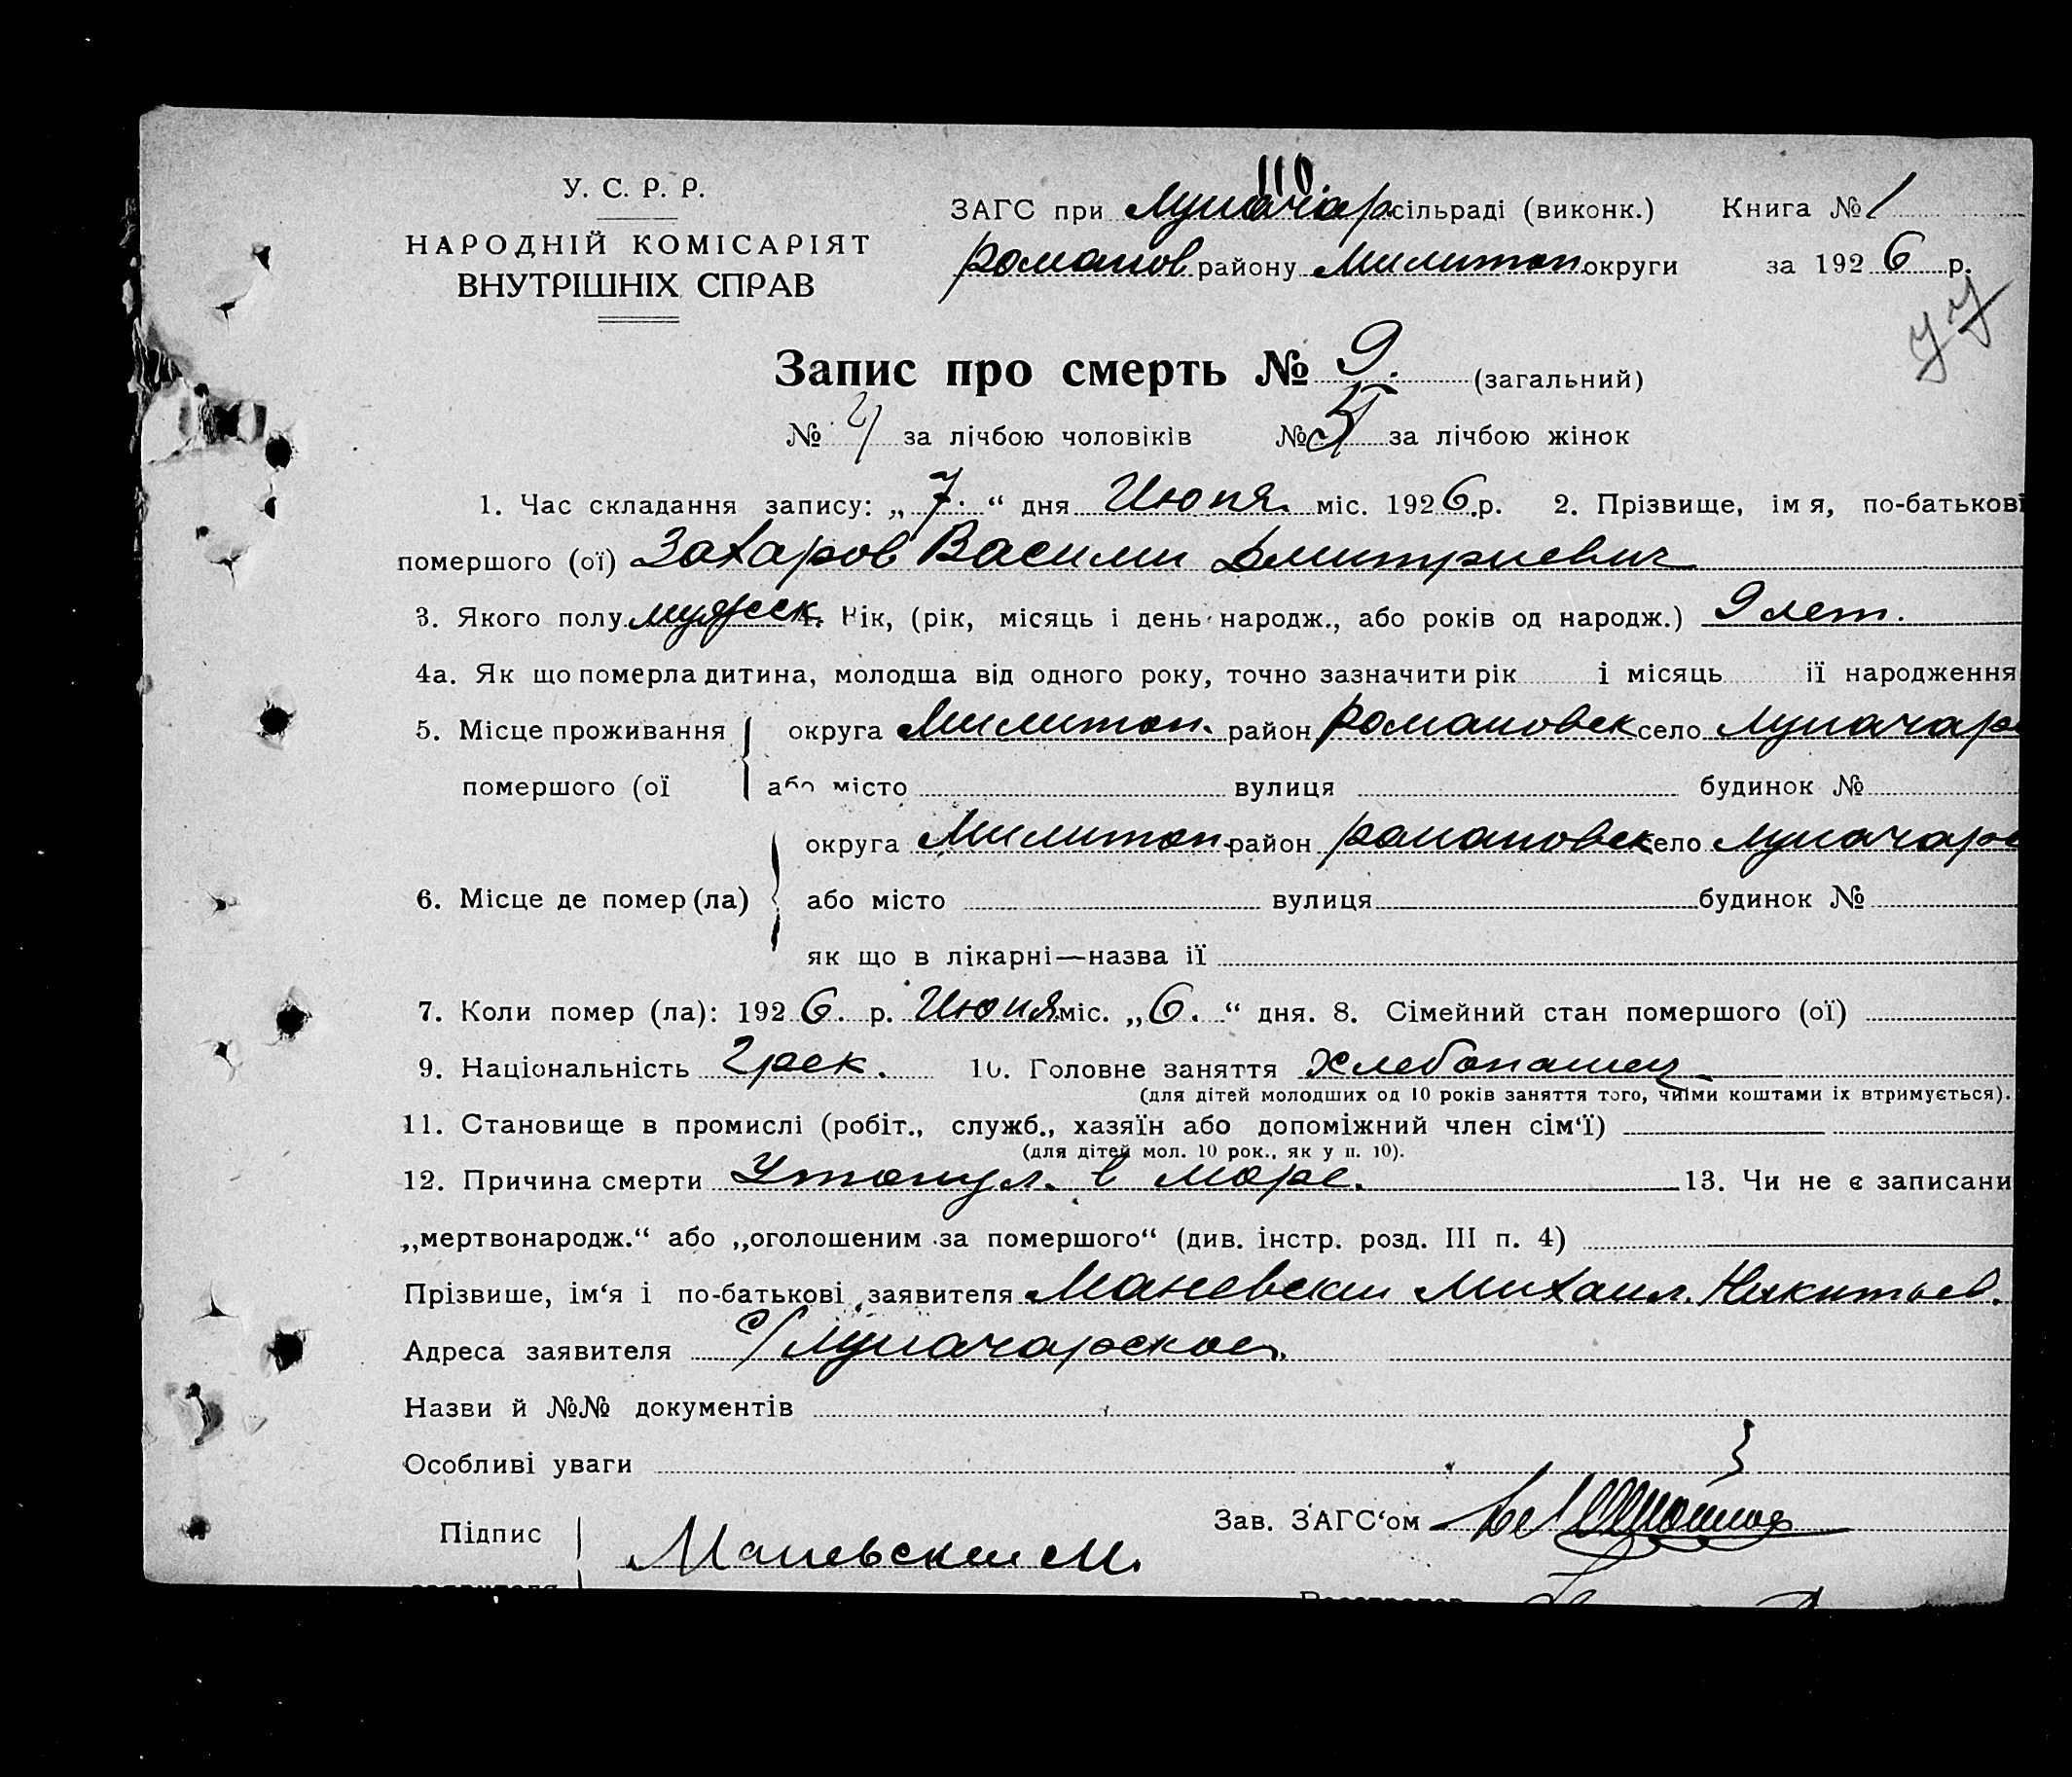 110.
У. С. Р. Р.
НАРОДНІЙ КОМІСАРІЯТ
ВНУТРІШНІХ СПРАВ
ЗАГС при Луначар сільраді (виконк.) Книга № 1
романов району Милитоп округи за 1926 р.
Запис про смерть № 9. (загальний)
№ 4 за лічбою чоловіків № 5 за лічбою жінок
1. Час складання запису: „7.“ дня Июня міс. 1926.р. 2. Прізвище, ім я, по-батькові
помершого (ої) Захаров Васили Дмитриевич
3. Якого полу мужеск 4. Вік, (рік, місяць і день народж., або років од народж.) 9 лет.
4а. Як що померла дитина, молодша від одного року, точно зазначити рік і місяць її народження
5. Місце проживання округа Милитоп. район романовск село Луначарс
помершого (ої або місто вулиця будинок №
округа Милитоп район романовск село Луначарс
6. Місце де помер (ла) або місто вулиця будинок №
як що в лікарні—назва її
7. Коли помер (ла): 1926. р. Июня міс. „6.“ дня. 8. Сімейний стан помершого (ої)
9. Національність Грек. 10. Головне заняття Хлебопашец
(для дітей молодших од 10 років заняття того, чиїми коштами їх втримується).
11. Становище в промислі (робіт., служб., хазяїн або допоміжний член сім‘ї)
(для дітей мол. 10 рок., як у п. 10).
12. Причина смерти Утонул. в море. 13. Чи не є записани
„мертвонародж.“ або „оголошеним за помершого“ (див. інстр. розд. III п. 4)
Прізвише, ім‘я і по-батькові заявителя Маневски Михаил. Никитьев.
Адреса заявителя С/Луначарское.
Назви й №№ документів
Особливі уваги
Зав. ЗАГС‘ом
Підпис Маневски М.